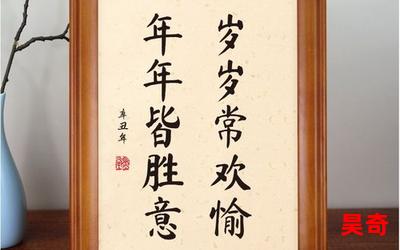 岁岁常欢愉
年年皆胜意
辛丑年
昊奇